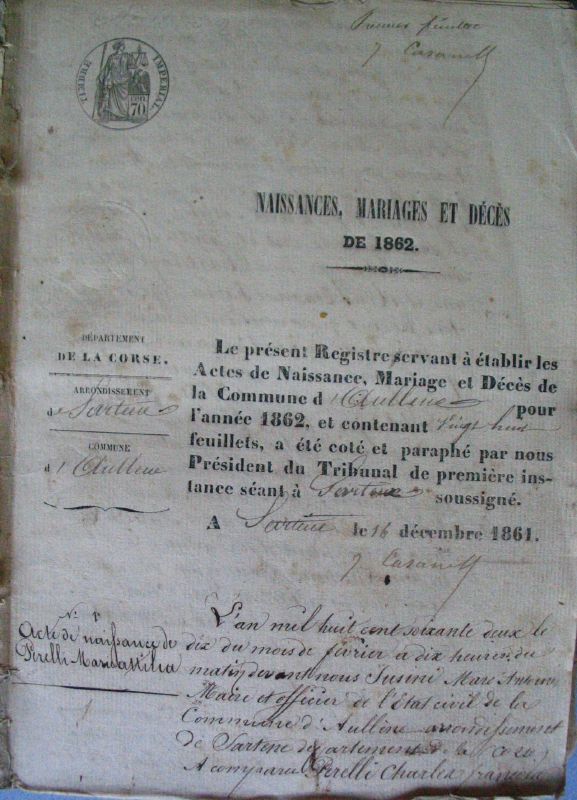 Premier feuillet
J Casanelli
TIMBRE IMPERIAL
70
NAISSANCES, MARIAGES ET DÉCÈS
DE 1862.
DÉPARTEMENT
DE LA CORSE.
ARRONDISSEMENT
de Sartene
COMMUNE
d'Aullene
Le présent Registre servant à établir les
Actes de Naissance, Mariage et Décès de
la Commune d'Aullene pour
l'année 1862, et contenant Vingt huit
feuillets, a été coté et paraphé par nous
Président du Tribunal de première ins-
tance séant à Sartene soussigné.
A Sartene le 16 décembre 1861.
J Casanelli
N.º 1
Acte de naissance de
Pirelli Maria
L'an mil huit cent soixante deux le
dix du mois de février a dix heures du
matin devant nous Susini Marc Antoine
Maire et officier de l'Etat civil de la
Commune d'Aullene arrondissement
de Sartene departement de la Corse
A comparu Pirelli Charles François